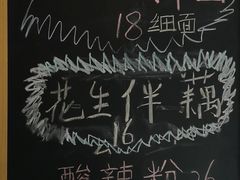 18细面
花生伴藕
16
酸辣粉 26